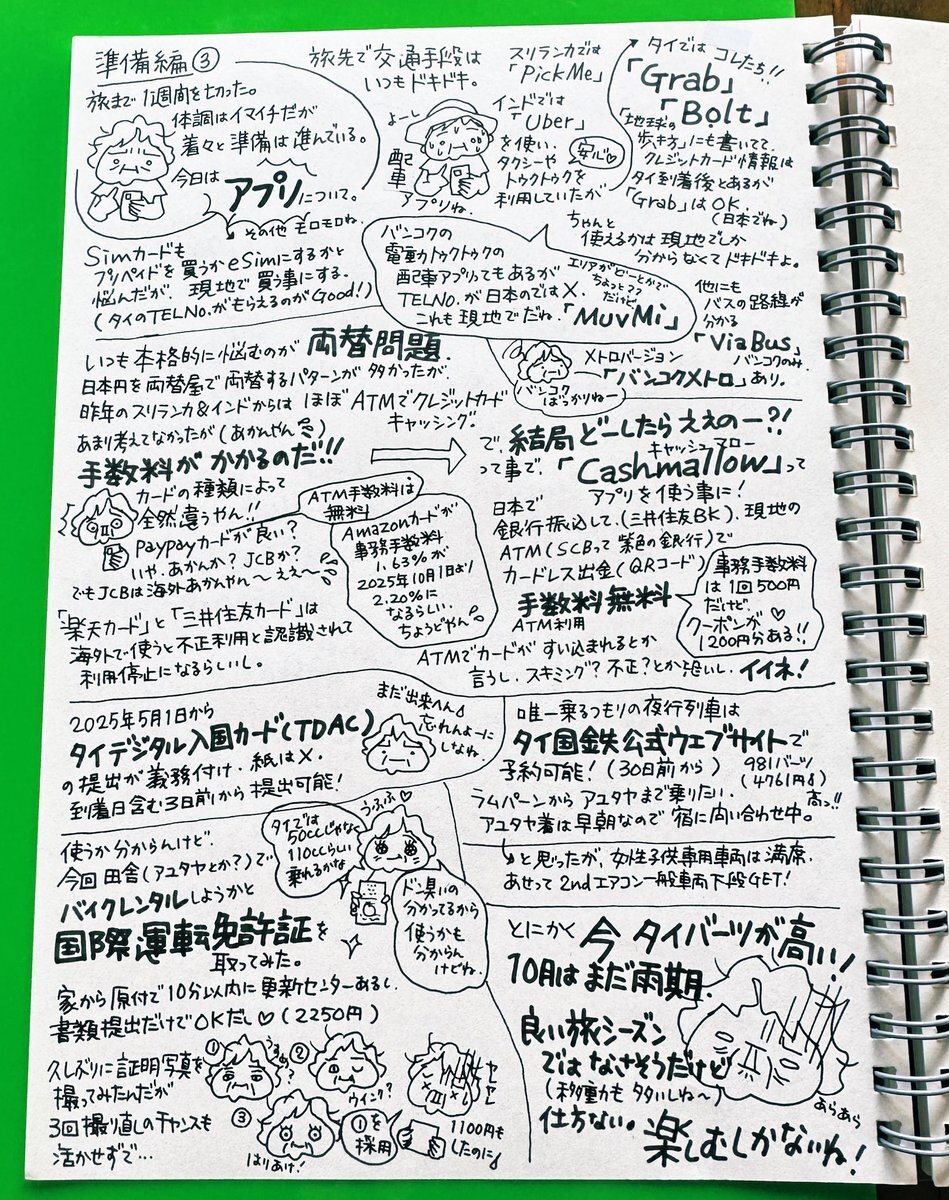 準備編③
旅まで1週間を切った。
体調はイマイチだが
着々と準備は進んでいる。
今日は
アプリについて。
その他モロモロね。
Simカードも
プリペイドを買うかeSimにするかと
悩んだが、現地で買う事にする。
(タイのTELNo.がもらえるのがGood!)
旅先で交通手段は
いつもドキドキ。
よーし
配車
アプリね。
スリランカでは
「PickMe」
インドでは
「Uber」
を使い、
安心♡
タクシーや
トゥクトゥクを
利用していたが
タイではコレたち!!
「Grab」
「Bolt」
「地球の
歩き方」にも書いてて、
クレジットカード情報は
タイ到着後とあるが
「Grab」はOK.
(日本でね)
ちゃんと
使えるかは現地でしか
分からなくてドキドキよ。
バンコクの
電動トゥクトゥクの
配車アプリってもあるが
TELNo.が日本のでは×.
これも現地でだね.「MuvMi」
エリアがどーとかで
ちょっと??
だけど
他にも
バスの路線が
分かる
「ViaBus」
バンコクのみ.
メトロバージョン
「バンコクメトロ」あり。
バンコク
ばっかりねー
いつも本格的に悩むのが 両替問題.
日本円を両替屋で両替するパターンが多かったが、
昨年のスリランカ&インドからは ほぼATMでクレジットカード
キャッシング.
あまり考えてなかったが(あかんやん)
手数料がかかるのだ!!
カードの種類によって
全然違うやん!!
Paypayカードが良い?
いや、あかんか?JCBか?
でもJCBは海外あかんやん〜ええ〜
ATM手数料は
無料
Amazonカードが
事務手数料
1.63%が
2025年10月1日より
2.20%に
なるらしい.
ちょうどやん
「楽天カード」と「三井住友カード」は
海外で使うと不正利用と認識されて
利用停止になるらしいし。
で、結局どーしたらええのー?!
って事で、「Cashmallow」って
キャッシュマロー
アプリを使う事に!
日本で
銀行振込して、(三井住友BK)、現地の
ATM(SCBって紫色の銀行)で
カードレス出金(QRコード)
手数料無料
ATM利用
事務手数料
は1回500円
だけど、
クーポンが♡
1200円分ある!!
ATMでカードがすい込まれるとか
言うし、スキミング?不正?とか恐いし、イイネ!
2025年5月1日から
タイデジタル入国カード(TDAC)
の提出が義務付け.紙は×.
到着日含む3日前から提出可能!
まだ出来へん
忘れんよーに
しなね
唯一乗るつもりの夜行列車は
タイ国鉄公式ウェブサイトで
予約可能!(30日前から)
981バーツ
(4761円)
高っ!!
ラムパーンからアユタヤまで乗りたい.
アユタヤ着は早朝なので宿に問い合わせ中。
と思ったが、女性子供専用車両は満席.
あせって2ndエアコン一般車両下段GET!
使うか分からんけど、
今回田舎(アユタヤとか?)で
バイクレンタルしようかと
国際運転免許証を
取ってみた。
タイでは
50ccじゃなく
110ccらい
乗れるかな
うふふ♡
ドン臭いの
分かってるから
使うかも
分からん
けどね.
家から原付で10分以内に更新センターあるし、
書類提出だけでOKだし♡(2250円)
久しぶりに証明写真を
撮ってみたんだが
3回撮り直しのチャンスも
活かせずで…
①
②
ウインク?
③
はりあけ!
①を
採用
1100円も
したのに
とにかく 今タイバーツが高い!
10月はまだ雨期.
良い旅シーズン
ではなさそうだけど
(移動も多いしね〜)
仕方ない。楽しむしかないね!
あらあら